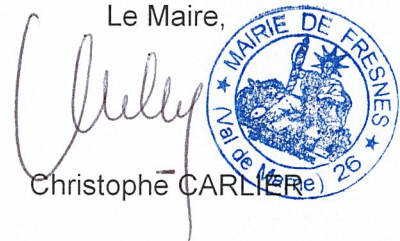 Le Maire,
★ MAIRIE DE FRESNES ★
(Val de Marne) 26
Christophe CARLIER